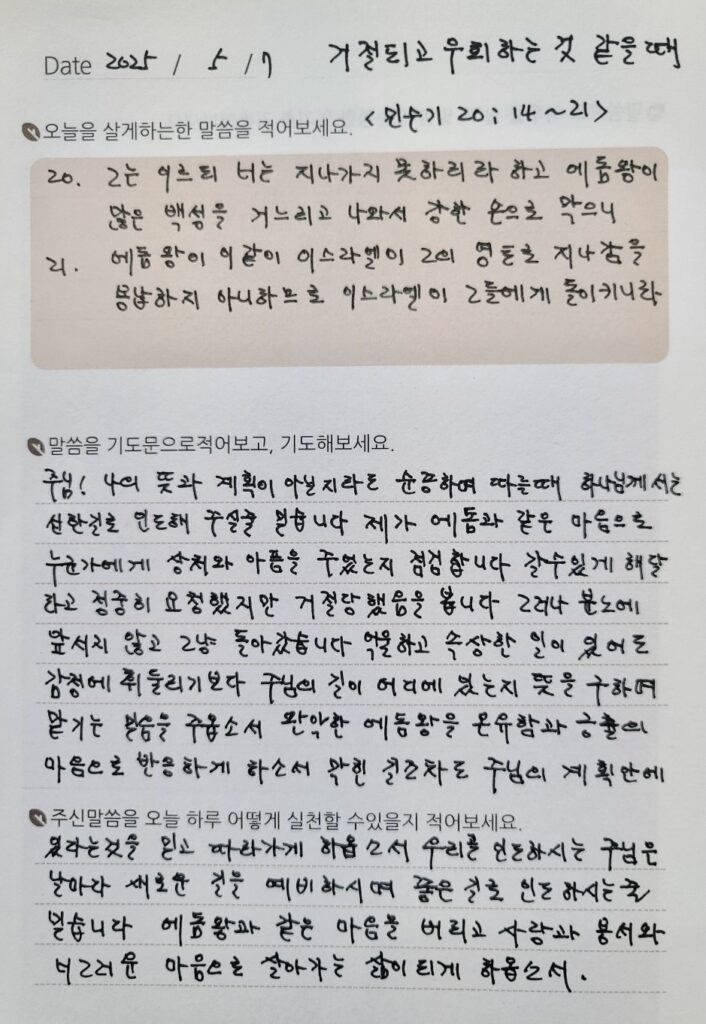 Date 2025 / 5 / 7 거절되고 우회하는 것 같을때
오늘을 살게하는한 말씀을 적어보세요. <민수기 20 : 14 ~ 21>
20. 그는 이르되 너는 지나가지 못하리라 하고 에돔왕이
많은 백성을 거느리고 나와서 강한 손으로 막으니
21. 에돔 왕이 이같이 이스라엘이 그의 영토로 지나감을
용납하지 아니하므로 이스라엘이 그들에게 돌이키니라
말씀을 기도문으로적어보고, 기도해보세요.
주님! 나의 뜻과 계획이 아닐지라도 순종하여 따를때 하나님께서는
선한길로 인도해 주실줄 믿습니다 제가 에돔과 같은 마음으로
누군가에게 상처와 아픔을 주었는지 점검합니다 갈수있게 해달
라고 정중히 요청했지만 거절당했음을 봅니다 그러나 분노에
앞서지 않고 그냥 돌아갔습니다 억울하고 속상한 일이 있어도
감정에 휘둘리기보다 주님의 길이 어디에 있는지 뜻을 구하며
맡기는 믿음을 주옵소서 완악한 에돔왕을 온유함과 긍휼의
마음으로 반응하게 하소서 막힌 길조차도 주님의 계획안에
주신말씀을 오늘 하루 어떻게 실천할 수있을지 적어보세요.
있다는것을 믿고 따라가게 하옵소서 우리를 인도하시는 주님은
날마다 새로운 길을 예비하시며 좋은 길로 인도하시는줄
믿습니다 에돔왕과 같은 마음을 버리고 사랑과 용서와
너그러운 마음으로 살아가는 삶이되게 하옵소서.